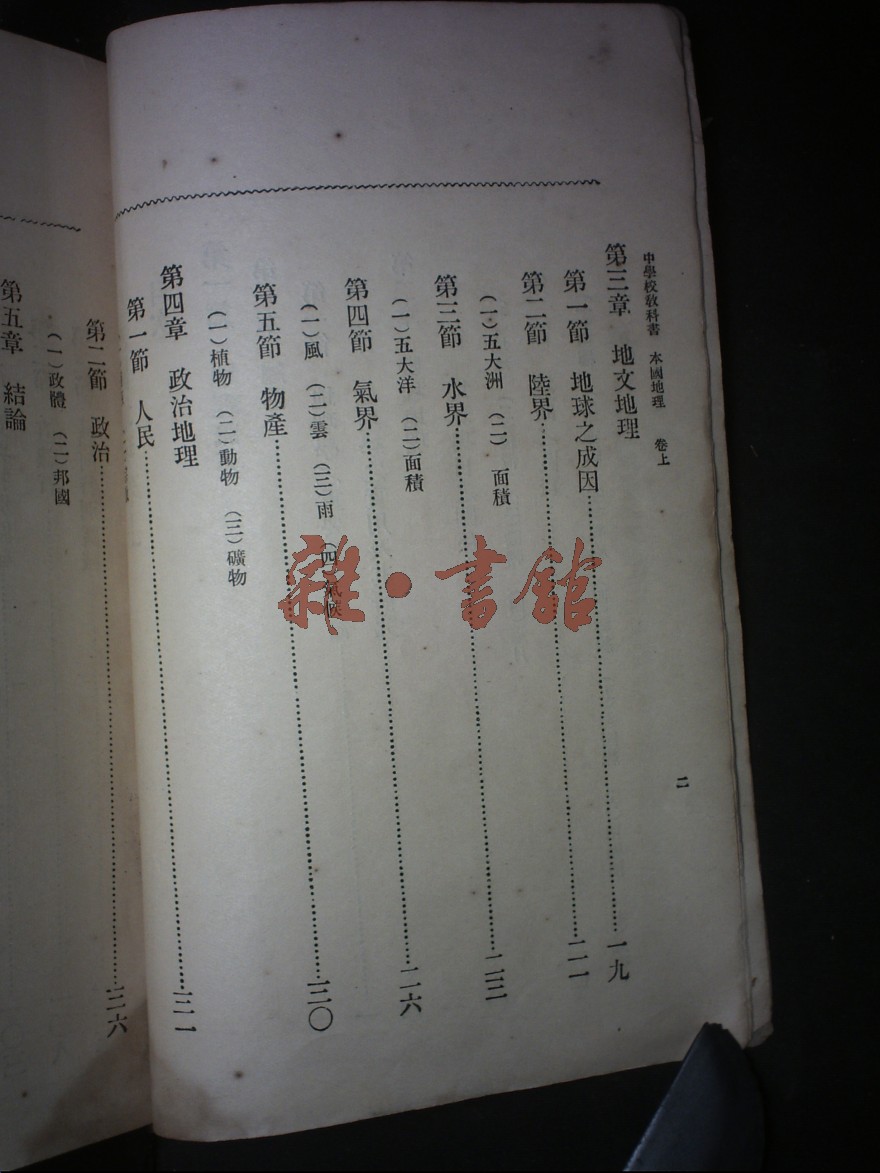 中學校教科書 本國地理 卷上
二
第三章 地文地理
第一節 地球之成因……一九
第二節 陸界……二一
(一)五大洲 (二) 面積
第三節 水界……二三
(一)五大洋 (二)面積
第四節 氣界……二六
(一)風 (二)雲 (三)雨 (四)氣候
第五節 物產……三〇
(一)植物 (二)動物 (三)礦物
第四章 政治地理
第一節 人民……三一
第二節 政治……三六
(一)政體 (二)邦國
第五章 結論
雜·書館